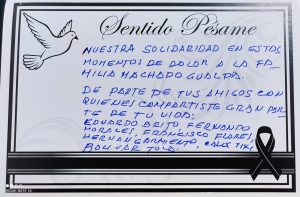 Sentido Pésame
NUESTRA SOLIDARIDAD EN ESTOS
MOMENTOS DE DOLOR A LA FA-
MILIA MACHADO GUALPA.
DE PARTE DE TUS AMIGOS CON
QUIENES COMPARTISTE GRAN PAR-
TE DE TU VIDA:
EDUARDO BRITO FERNANDO
MORALES, FRANCISCO FLORES
HERNAN SARMIENTO,
BOLIVAR